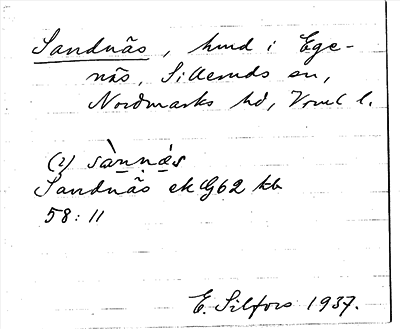 Sandnäs, hmd i Ege-
näs, Silleruds sn,
Nordmarks hd, Vrml l.
(2) sànnǽs
Sandnäs ek G62 kb
58:11
E. Silfors 1937.